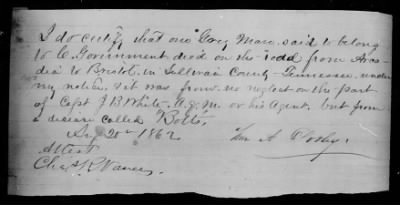 I do certify that one Grey Mare said to belong
to C. Government died on the road from Arca-
dia to Bristol in Sullivan County Tennessee under
my notice, & it was from no neglect on the part
of Capt J B White A.Q.M. or his Agent, but from
a disease called Botts.
20th 1862
Wm A
Attest
Chas R Vance